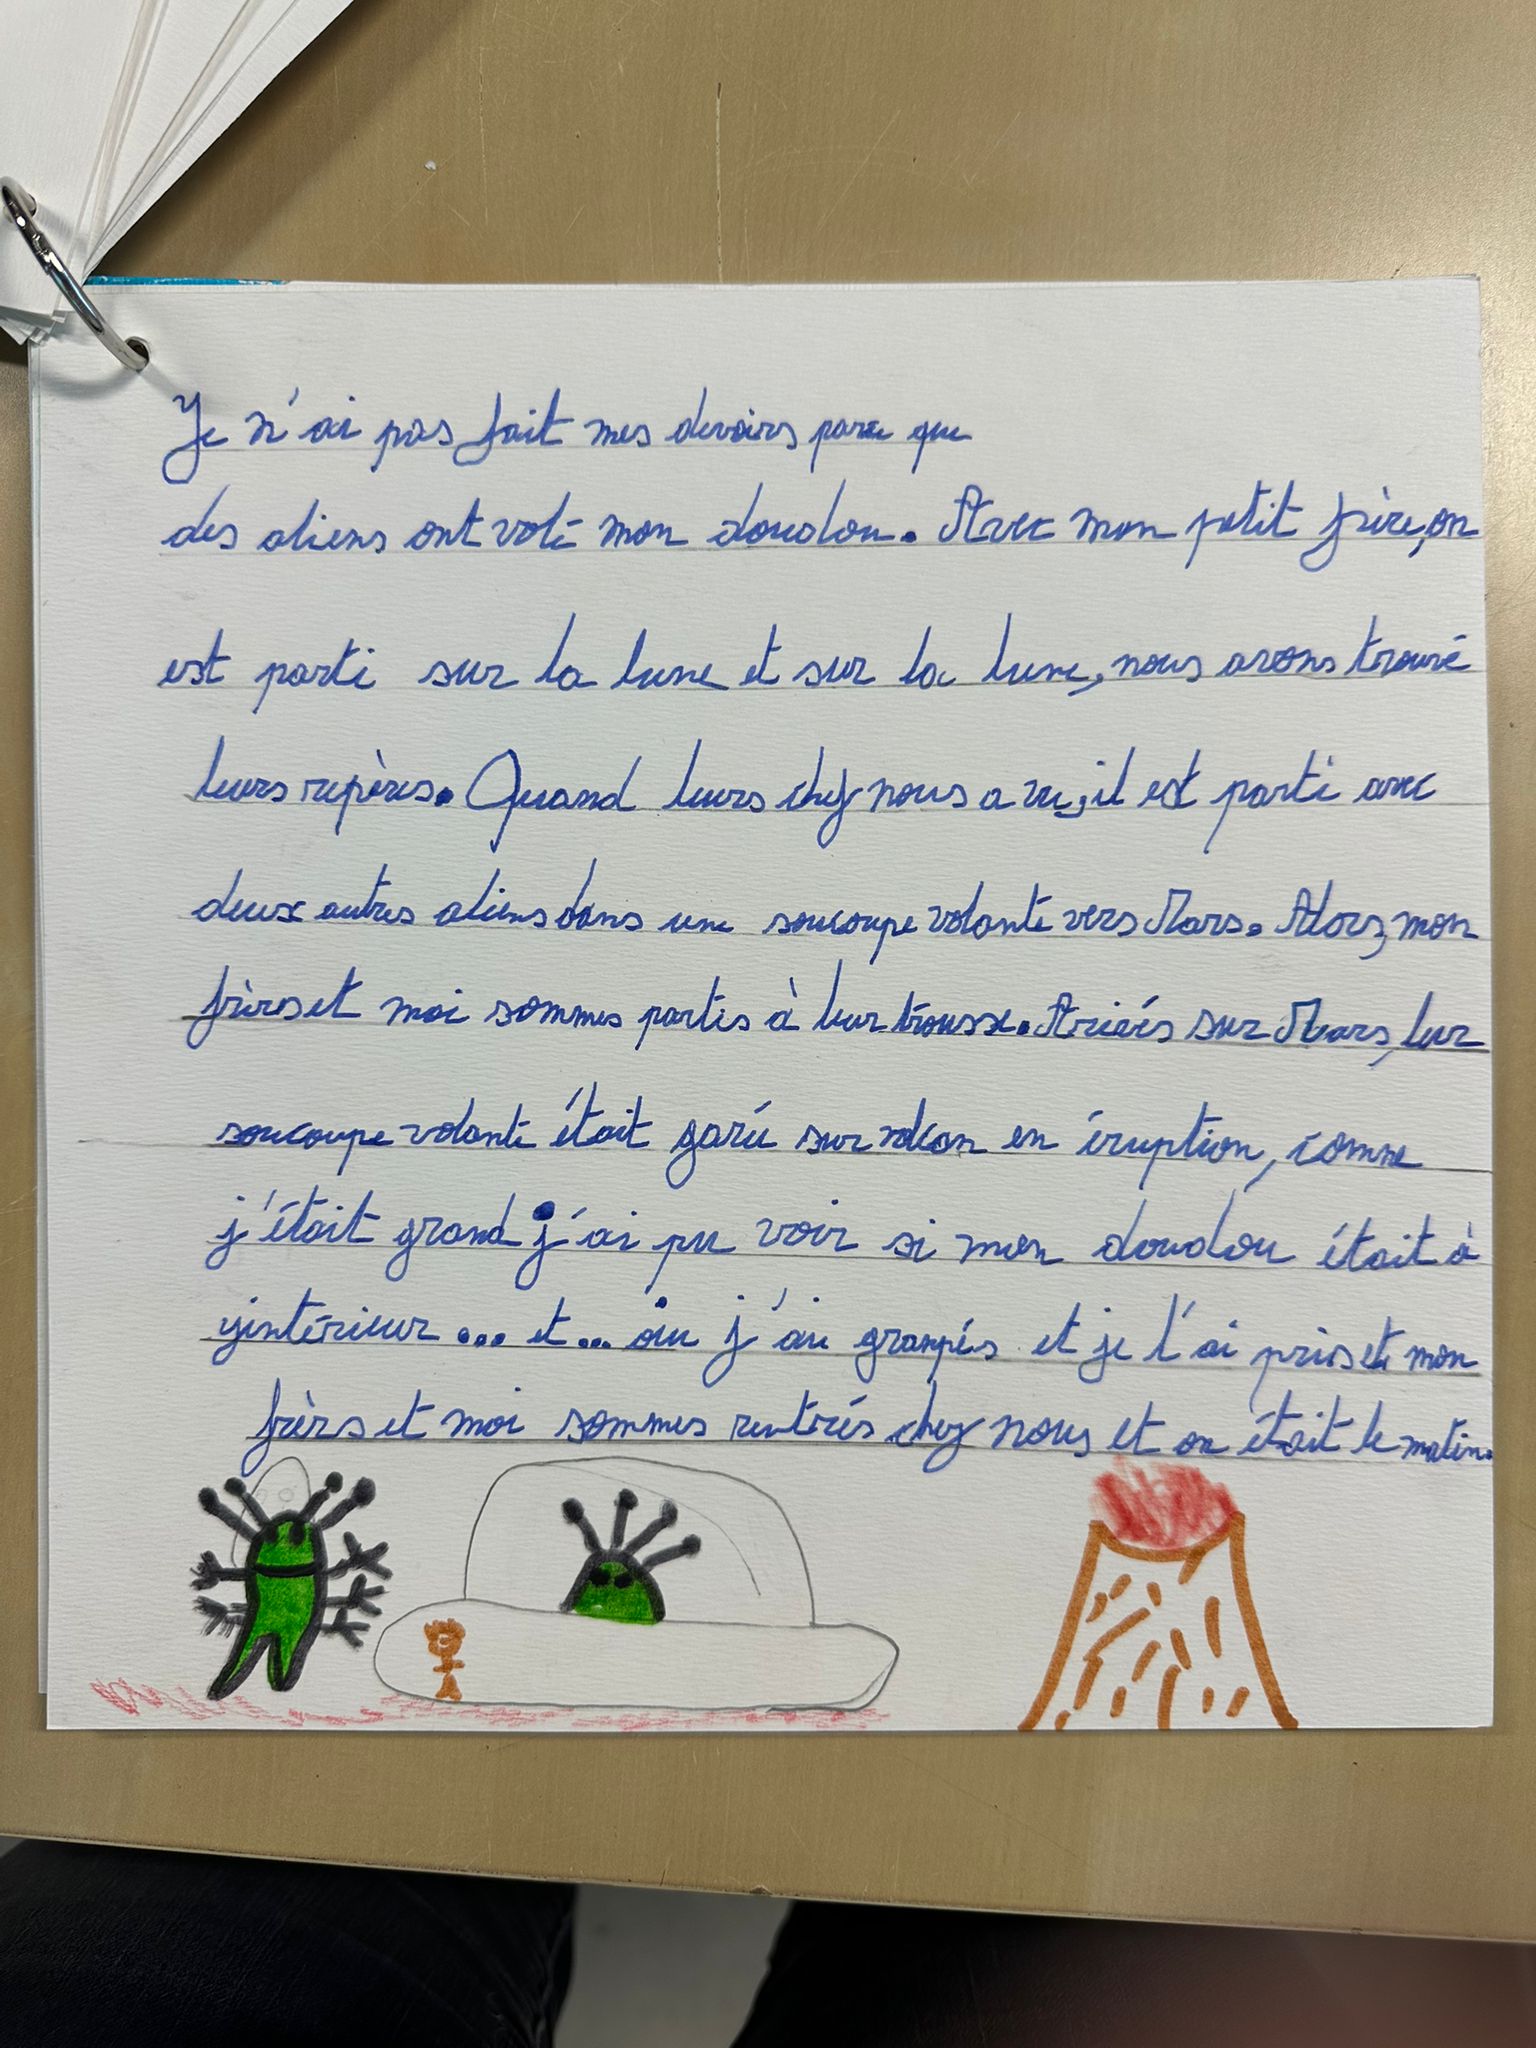 Je n'ai pas fait mes devoirs parce que
des aliens ont volé mon doudou. Avec mon petit frère, on
est parti sur la lune et sur la lune, nous avons trouvé
leurs repères. Quand leurs chef nous a vu, il est parti avec
deux autres aliens dans une soucoupe volante vers Mars. Alors, mon
frère et moi sommes partis à leur trousse. Ariévés sur Mars, leur
soucoupe volante était garée sur volcan en éruption, comme
j'était grand j'ai pu voir si mon doudou était à
intérieur ... et ... oui j'ai grampés et je l'ai pris et mon
frère et moi sommes rentrés chez nous et on était le matin.